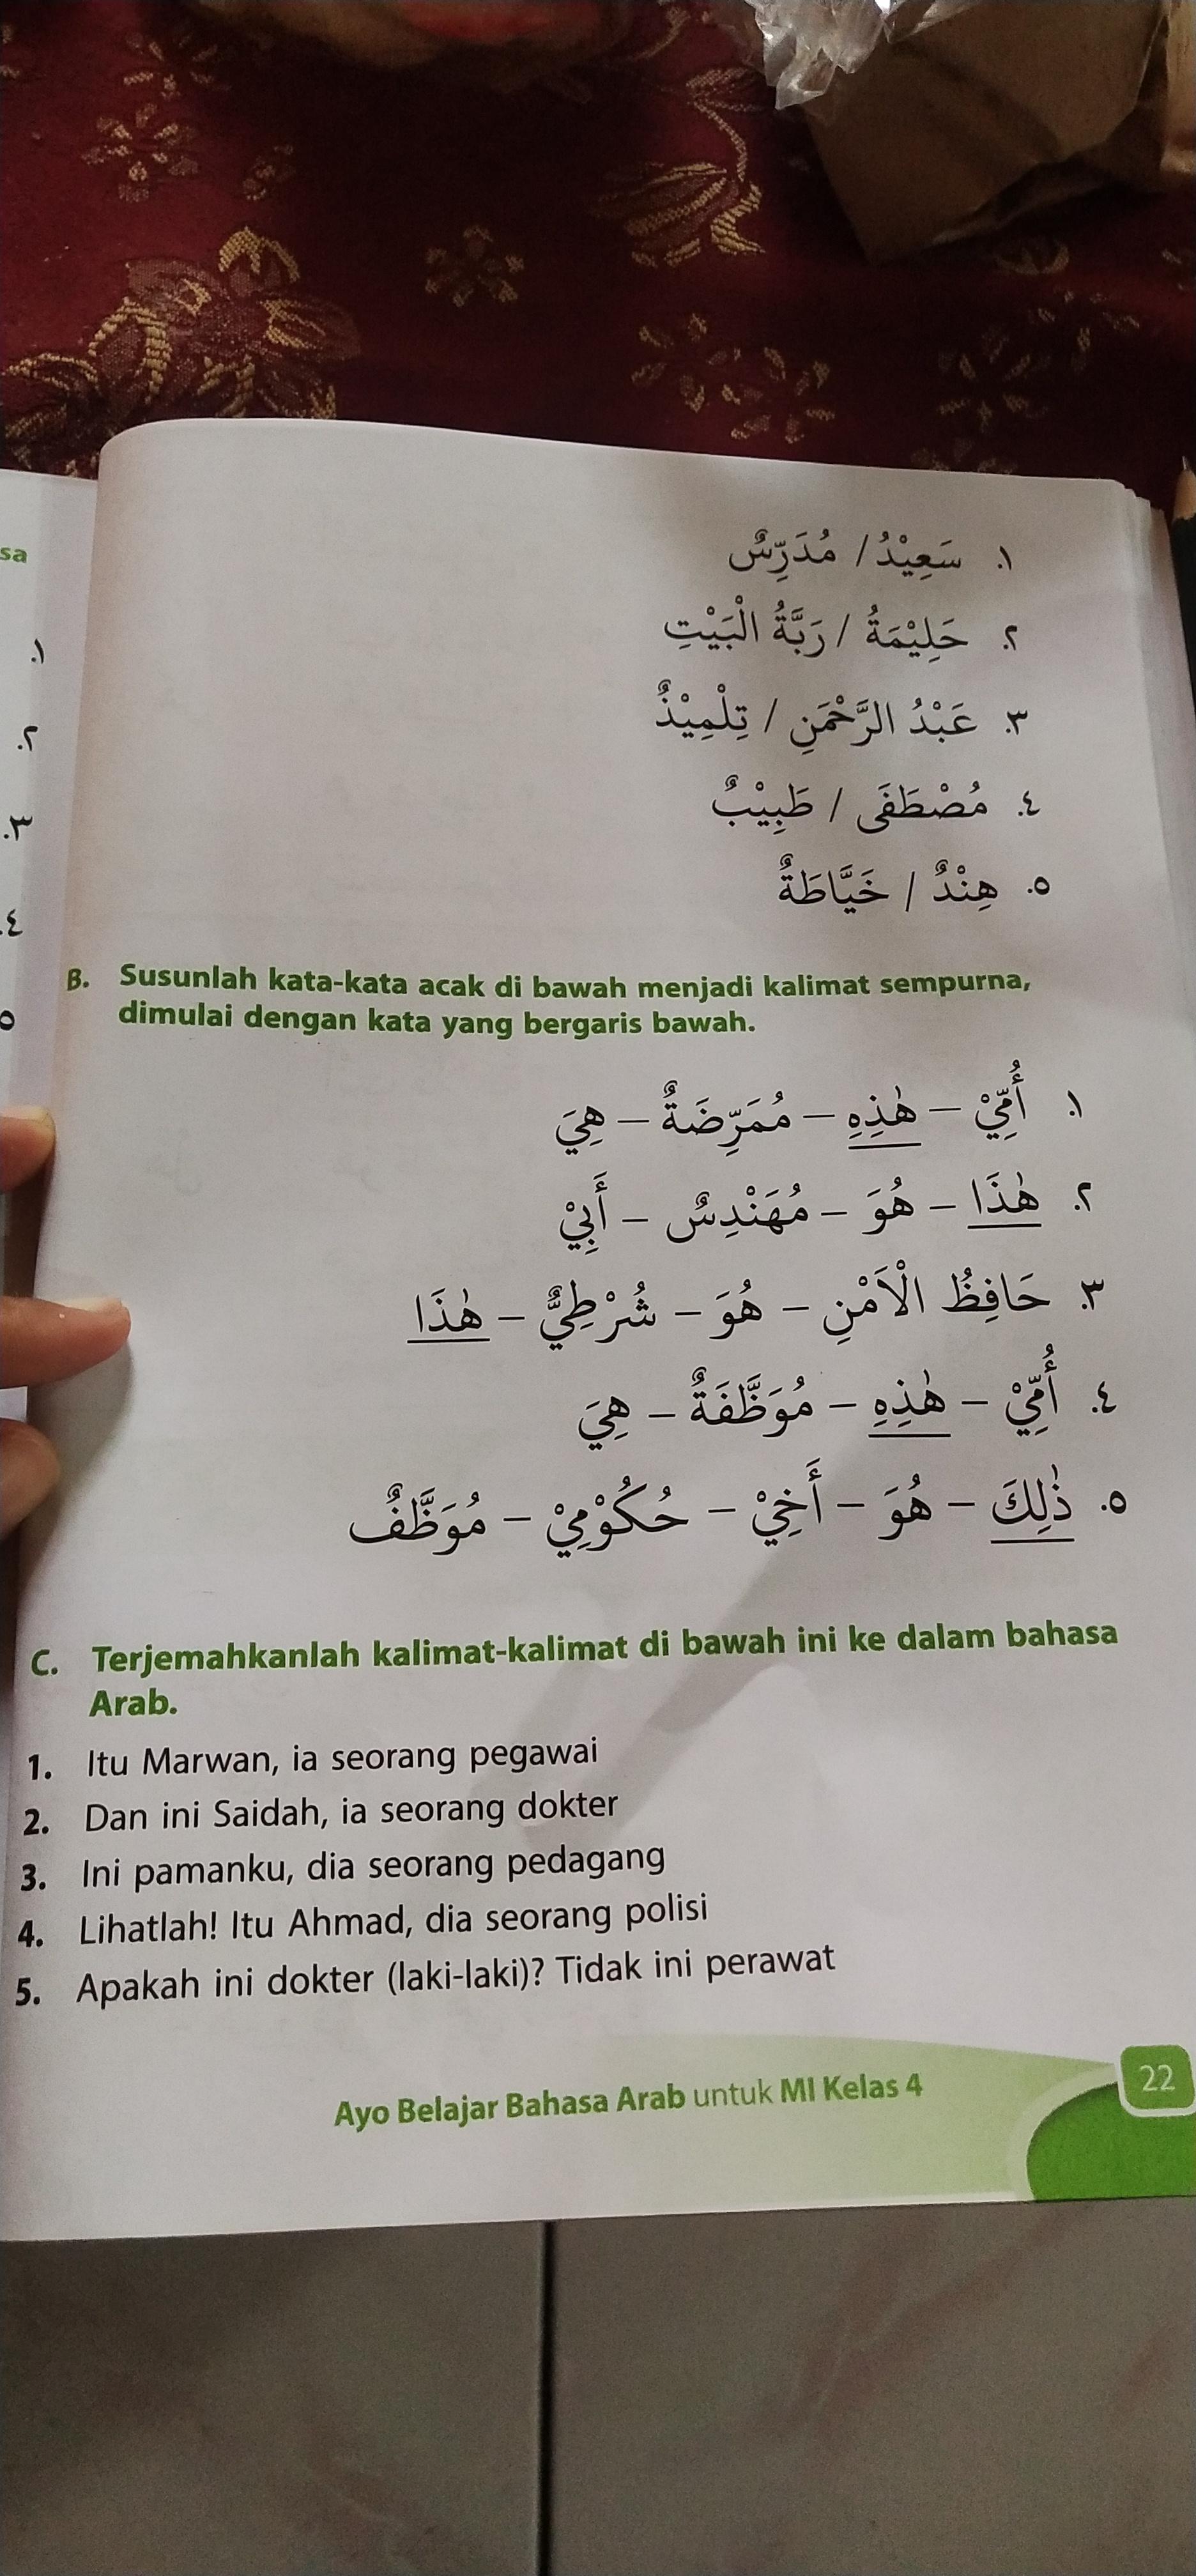 sa
.١
.٢
.٣
.٤
٥
.١ سَعِيْدٌ / مُدَرِّسٌ
.٢ حَلِيْمَةُ / رَبَّةُ الْبَيْتِ
.٣ عَبْدُ الرَّحْمَنِ / تِلْمِيْذٌ
.٤ مُصْطَفَى / طَبِيْبٌ
.٥ هِنْدٌ / خَيَّاطَةٌ
B. Susunlah kata-kata acak di bawah menjadi kalimat sempurna,
dimulai dengan kata yang bergaris bawah.
.١ أُمِّيْ – هٰذِهِ – مُمَرِّضَةٌ – هِيَ
.٢ هٰذَا – هُوَ – مُهَنْدِسٌ – أَبِيْ
.٣ حَافِظُ الْاَمْنِ – هُوَ – شُرْطِيٌّ – هٰذَا
.٤ أُمِّيْ – هٰذِهِ – مُوَظَّفَةٌ – هِيَ
.٥ ذٰلِكَ – هُوَ – أَخِيْ – حُكُوْمِيْ – مُوَظَّفٌ
C. Terjemahkanlah kalimat-kalimat di bawah ini ke dalam bahasa
Arab.
1. Itu Marwan, ia seorang pegawai
2. Dan ini Saidah, ia seorang dokter
3. Ini pamanku, dia seorang pedagang
4. Lihatlah! Itu Ahmad, dia seorang polisi
5. Apakah ini dokter (laki-laki)? Tidak ini perawat
Ayo Belajar Bahasa Arab untuk MI Kelas 4
22